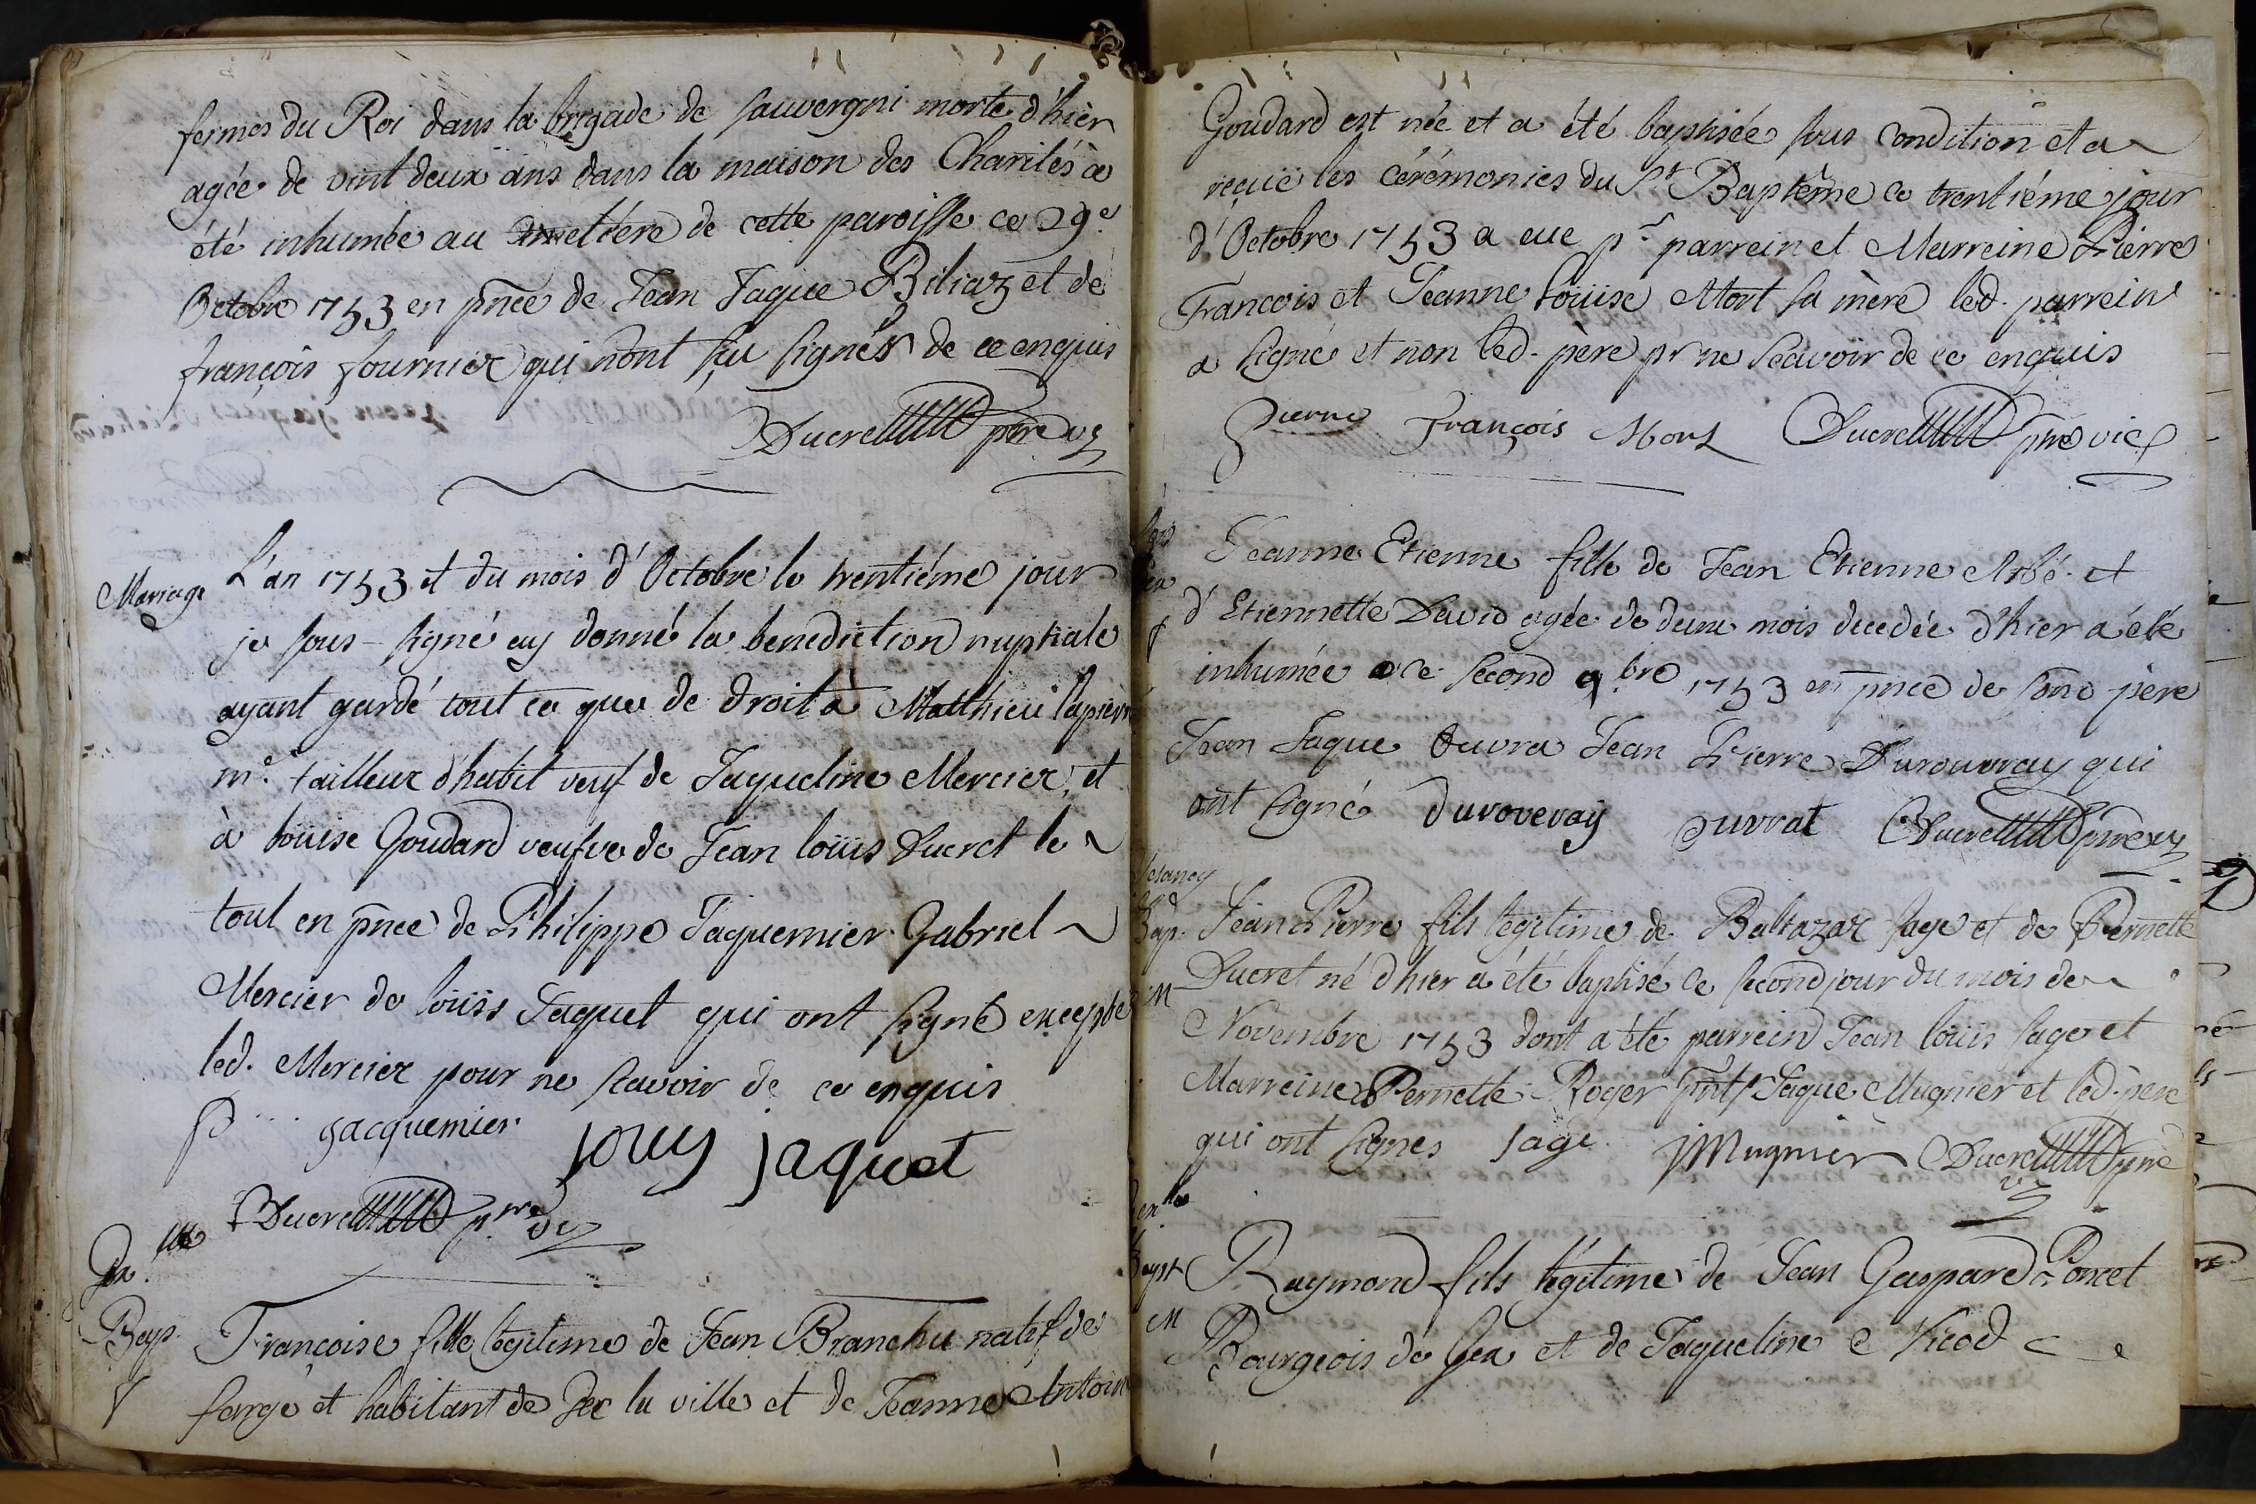 fermes du Roi dans la brigade de sauvergni morte d'hier
agée de vint deux ans dans la maison des Charités à
été inhumée au cimetiére de cette paroisse ce 29.e
Octobre 1753 en pnce de Jean Jaque Biliaz et de
françois fournier qui n'ont sçu signés de ce enquis
Ducret ptre vic
Mariage
L'an 1753 et du mois d'Octobre le trentiéme jour
je sous-signé ay donné la benediction nuptiale
ayant gardé tout ce que de droit à Matthieu lapierre
m.e tailleur d'habit veuf de Jaqueline Mercier, et
à louise Goudard veufve de Jean loüis Ducret le
tout en pnce de Philippe Jaquemier Gabriel
Mercier de loüis Jaquet qui ont signé excepté
led. Mercier pour ne scavoir de ce enquis
P gacquemier louy jaquet
Ducret p.tre vic
Gex. ville
Bap.
f
Françoise fille legitime de Jean Branchu natif de
farge et habitant de Gex la ville et de Jeanne Antoine
Goudard est née et a été baptisée sous condition et a
reçuë les cérémonies du St Baptême ce trentiéme jour
d'Octobre 1753 a eue pr parrein et Marreine Pierre
François et Jeanne Loüise Mort sa mère led. parrein
a signé et non led. père pr ne scavoir de ce enquis
Pierre François Mort Ducret ptre vic
Gex
f
Jeanne Etienne fille de Jean Etienne Abbé et
d'Etiennette David agée de deux mois decedée d'hier a été
inhumée ce second 9.bre 1753 en pnce de sond père
Jean Jaque Duvra Jean Pierre Durouveray qui
ont signé duroveray duvrat Ducret ptre vic
Vesancy
Bap.
M
Jean Pierre fils legitime de Baltazar sage et de Pernette
Ducret né d'hier a été baptisé ce second jour du mois de
Novembre 1753 dont a été parrein Jean loüis sage et
Marreine Pernette Roger pnts Jaque Mugnier et led. père
qui ont signés sage JMugnier Ducret ptre
vic
Bapt
M
Raymond fils légitime de Jean Gaspard Poncet
Bourgeois de Gex et de Jaqueline Nicod